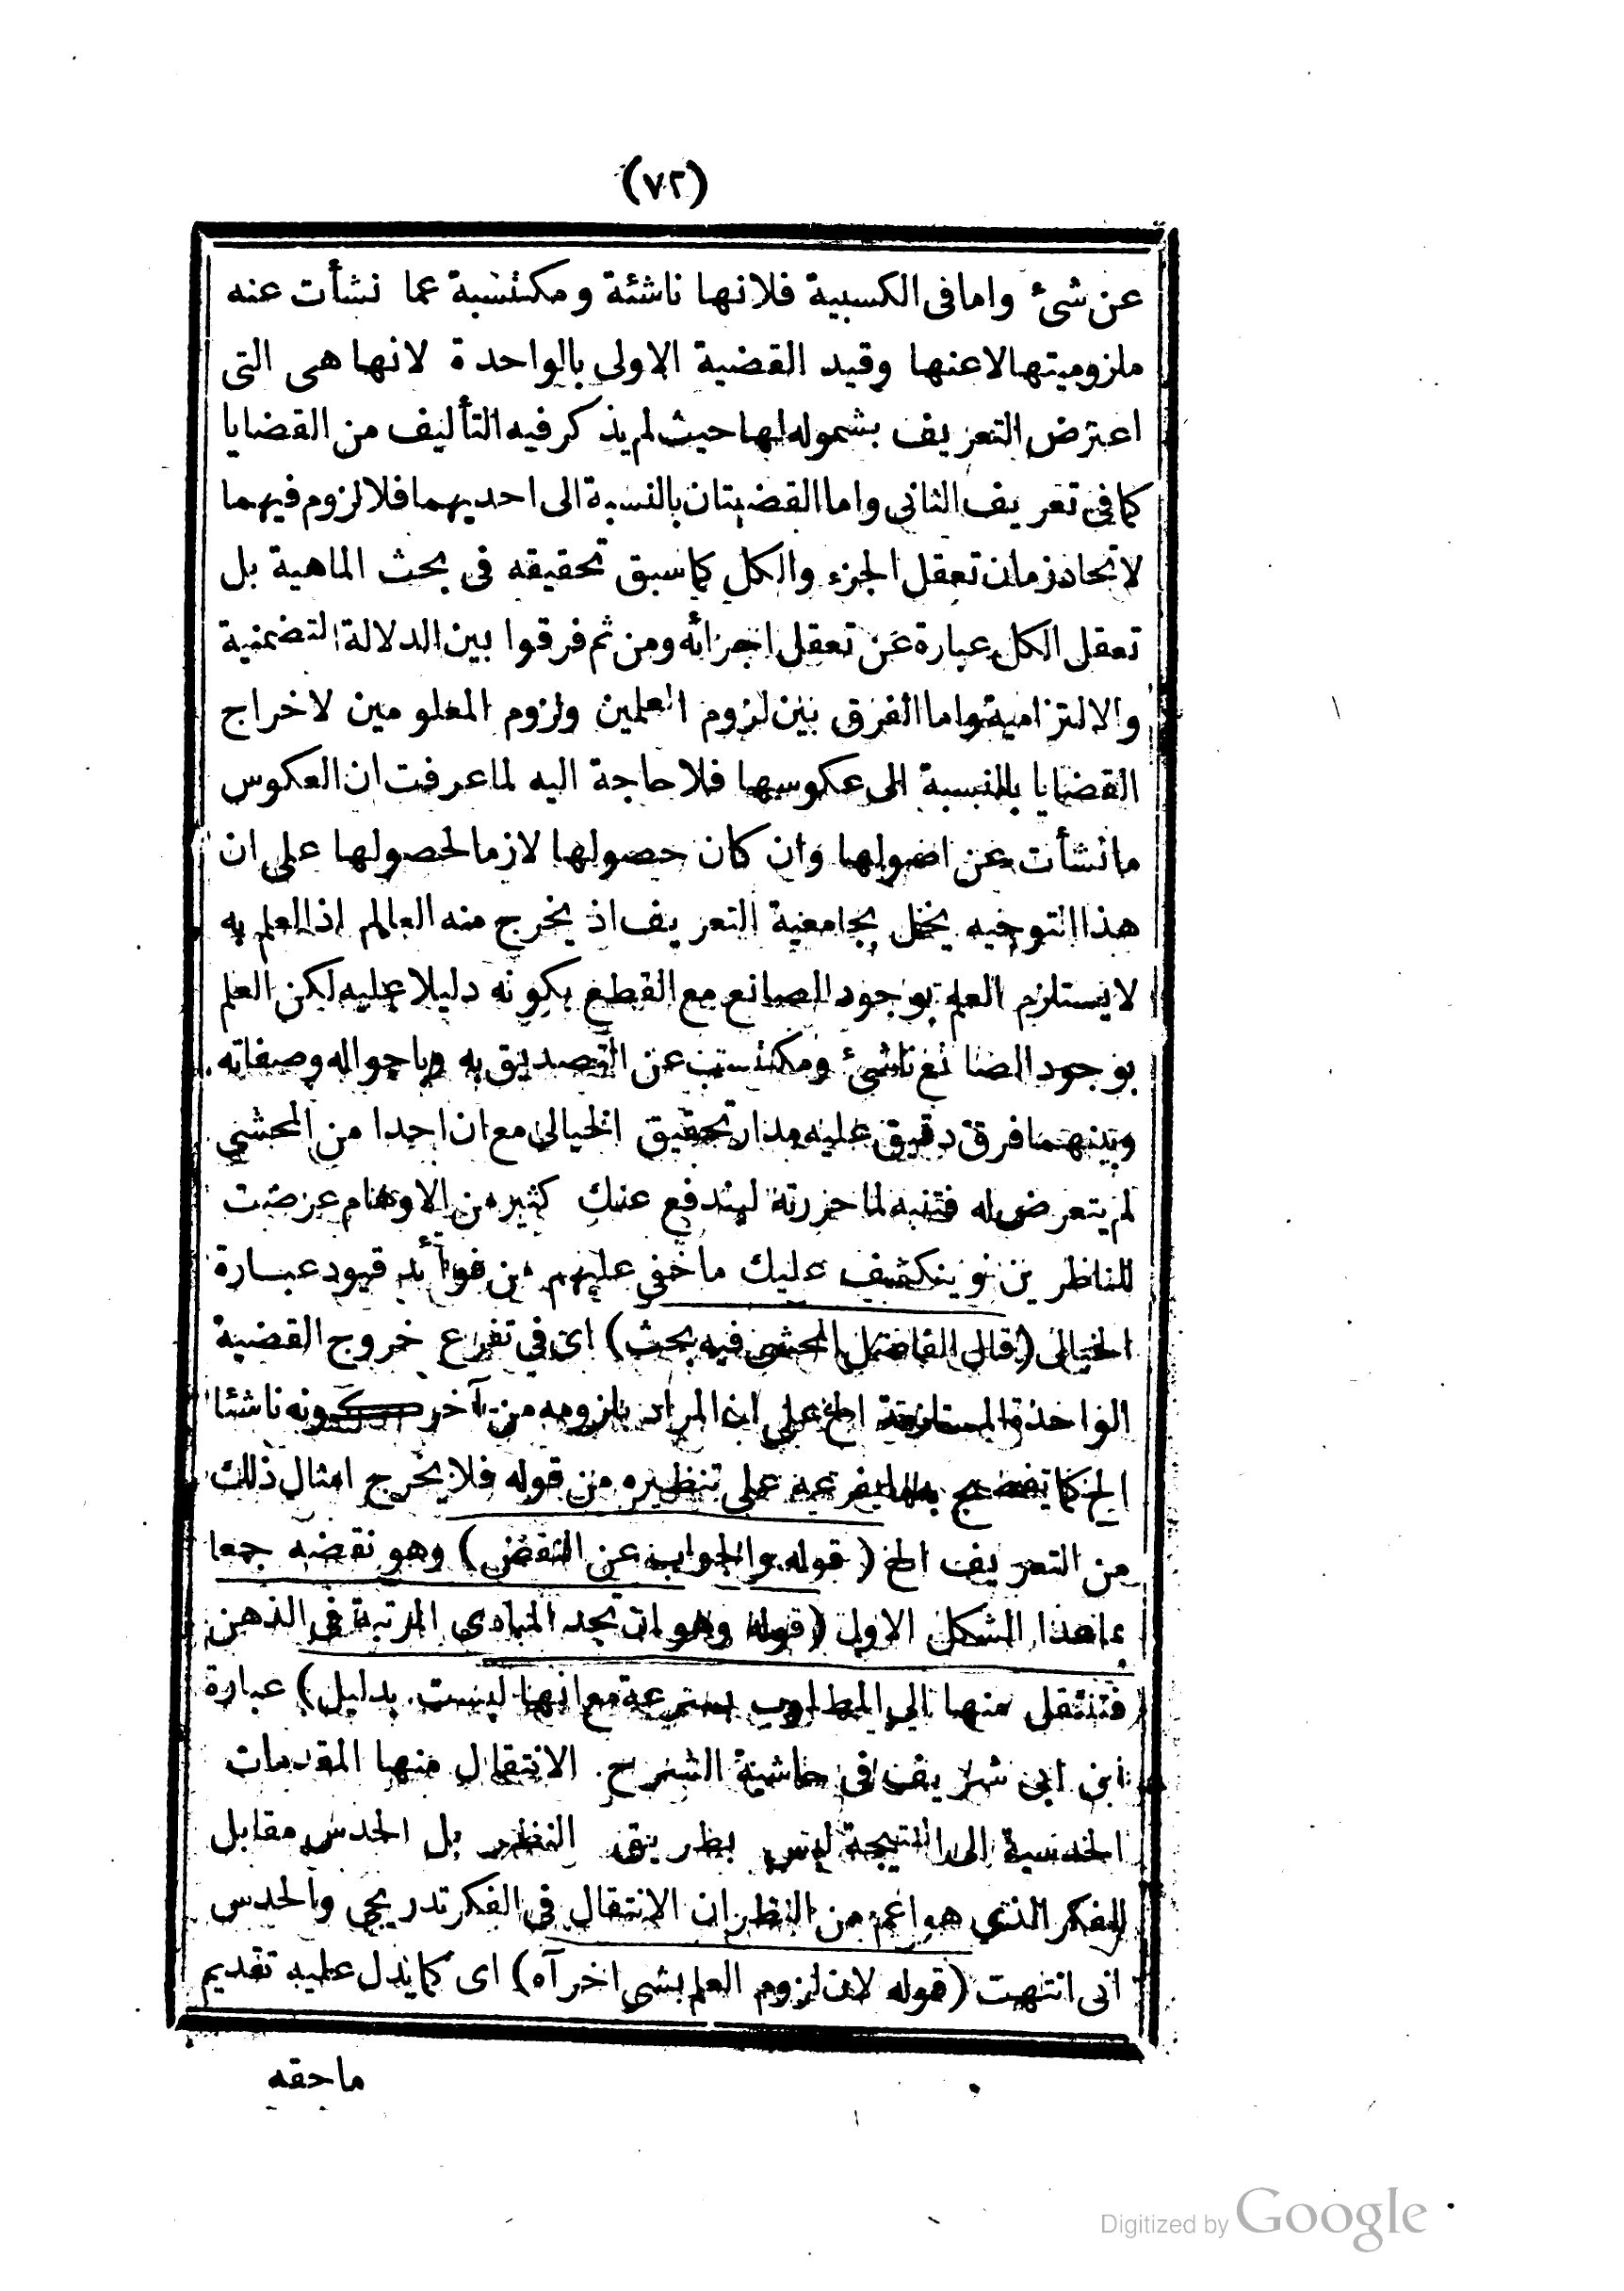 (٧٢)
عن شئ واما فى الكسبية فلانها ناشئة ومكتسبة عما نشأت عنه
ملزوميتها لا عنها وقيد القضية الاولى بالواحدة لانها هى التى
اعترض التعريف بشموله لها حيث لم يذكر فيه التأليف من القضايا
كما فى تعريف الثانى واما القضيتان بالنسبة الى احديهما فلا لزوم فيهما
لاتحاد زمان تعقل الجزء والكل كما سبق تحقيقه فى بحث الماهية بل
تعقل الكل عبارة عن تعقل اجزائه ومن ثم فرقوا بين الدلالة التضمنية
والالتزامية واما الفرق بين لزوم العلمين ولزوم المعلومين لاخراج
القضايا بالنسبة الى عكوسها فلا حاجة اليه لما عرفت ان العكوس
ما نشأت عن اصولها وان كان حصولها لازما لحصولها على ان
هذا التوجيه يخل بجامعية التعريف اذ يخرج منه العالم اذ العلم به
لا يستلزم العلم بوجود الصانع مع القطع بكونه دليلا عليه لكن العلم
بوجود الصانع ناشئ ومكتسب عن التصديق به وباحواله وصفاته
وبينهما فرق دقيق عليه مدار تحقيق الخيالى مع ان احدا من المحشى
لم يتعرض له فتنبه لما حررته ليندفع عنك كثير من الاوهام عرضت
للناظرين وينكشف عليك ما خفى عليهم من فوائد قيود عبارة
الخيالى (قال الفاضل المحشى فيه بحث) اى فى تفرع خروج القضية
الواحدة المستلزمة الخ على ان المراد بلزومه من آخر كونه ناشئا
الخ كما يفصح تفريعه على تنظيره من قوله فلا يخرج امثال ذلك
من التعريف الخ (قوله والجواب عن النقض) وهو نقضه جمعا
بما هذا الشكل الاول (قوله وهو ان تجد المبادى المرتبة فى الذهن
فتنتقل منها الى المطلوب بسرعة مع انها ليست بدليل) عبارة
ابن ابى شريف فى حاشية الشرح. الانتقال منها المقدمات
الحدسية الى النتيجة ليس بطريق النظر بل الحدس مقابل
للفكر الذى هو اعم من النظر ان الانتقال فى الفكر تدريجى والحدس
انى انتهت (قوله لان لزوم العلم بشى اخر آه) اى كما يدل عليه تقديم
ماحقه
Digitized by Google